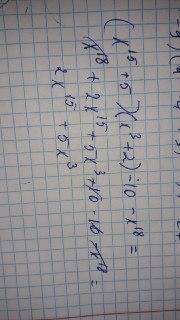 (x¹⁵+5)(x³+2)-10-x¹⁸=
x¹⁸+2x¹⁵+5x³+10-10-x¹⁸=
2x¹⁵+5x³